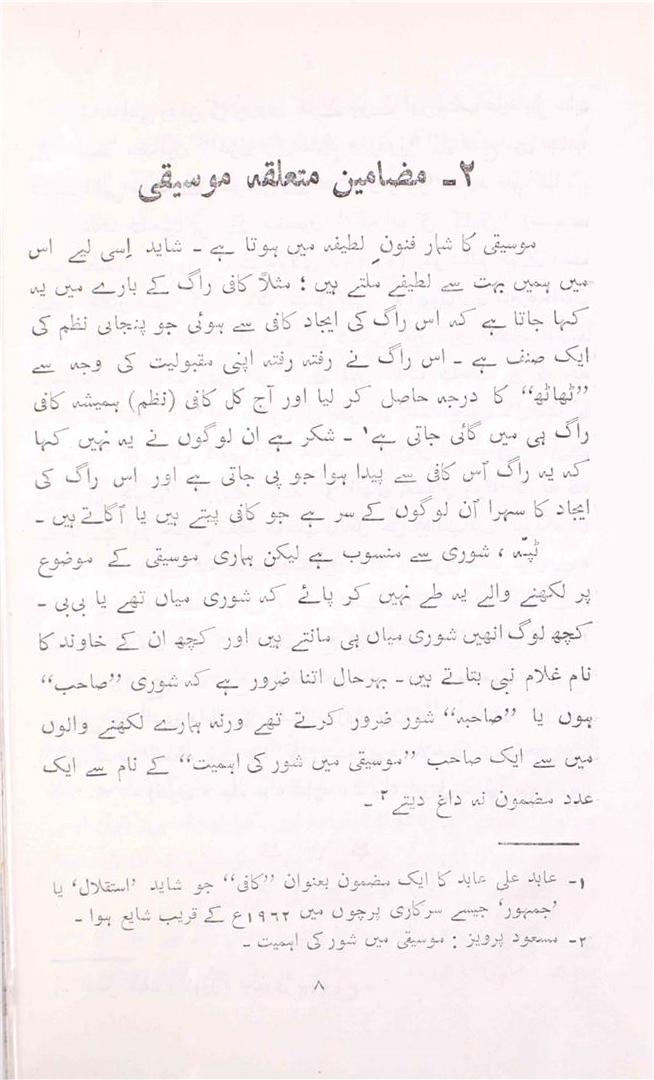 ۲۔ مضامین متعلقہ موسیقی
موسیقی کا شمار فنونِ لطیفہ میں ہوتا ہے ۔ شاید اِسی لیے اس
میں ہمیں بہت سے لطیفے ملتے ہیں ؛ مثلاً کافی راگ کے بارے میں یہ
کہا جاتا ہے کہ اس راگ کی ایجاد کافی سے ہوئی جو پنجابی نظم کی
ایک صنف ہے ۔ اس راگ نے رفتہ رفتہ اپنی مقبولیت کی وجہ سے
”ٹھاٹھ“ کا درجہ حاصل کر لیا اور آج کل کافی (نظم) ہمیشہ کافی
راگ ہی میں گائی جاتی ہے۱ ۔ شکر ہے ان لوگوں نے یہ نہیں کہا
کہ یہ راگ اُس کافی سے پیدا ہوا جو پی جاتی ہے اور اس راگ کی
ایجاد کا سہرا اُن لوگوں کے سر ہے جو کافی پیتے ہیں یا اُگاتے ہیں ۔
ٹپّہ ، شوری سے منسوب ہے لیکن ہماری موسیقی کے موضوع
پر لکھنے والے یہ طے نہیں کر پائے کہ شوری میاں تھے یا بی بی ۔
کچھ لوگ انھیں شوری میاں ہی مانتے ہیں اور کچھ ان کے خاوند کا
نام غلام نبی بتاتے ہیں ۔ بہرحال اتنا ضرور ہے کہ شوری ”صاحب“
ہوں یا ”صاحبہ“ شور ضرور کرتے تھے ورنہ ہمارے لکھنے والوں
میں سے ایک صاحب ”موسیقی میں شور کی اہمیت“ کے نام سے ایک
عدد مضمون نہ داغ دیتے۲ ۔
۱۔ عابد علی عابد کا ایک مضمون بعنوان ”کافی“ جو شاید ’استقلال‘ یا
’جمہور‘ جیسے سرکاری پرچوں میں ۱۹۶۲ع کے قریب شایع ہوا ۔
۲۔ مسعود پرویز : موسیقی میں شور کی اہمیت ۔
۸